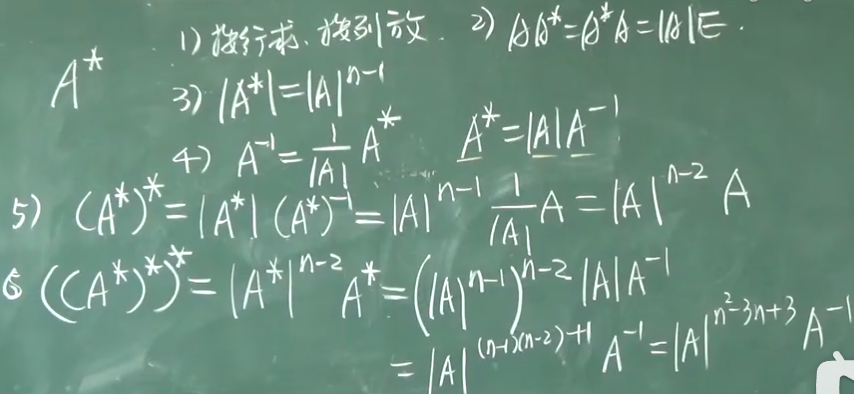 A* 1) 按行求、按列放. 2) AA*=A*A=|A|E.
3) |A*|=|A|^{n-1}
4) A^{-1}=\frac{1}{|A|}A* A*=|A|A^{-1}
5) (A*)*=|A*|(A*)^{-1}=|A|^{n-1}\frac{1}{|A|}A=|A|^{n-2}A
6 ((A*)*)*=|A*|^{n-2}A*=(|A|^{n-1})^{n-2}|A|A^{-1}
=|A|^{(n-1)(n-2)+1}A^{-1}=|A|^{n^2-3n+3}A^{-1}